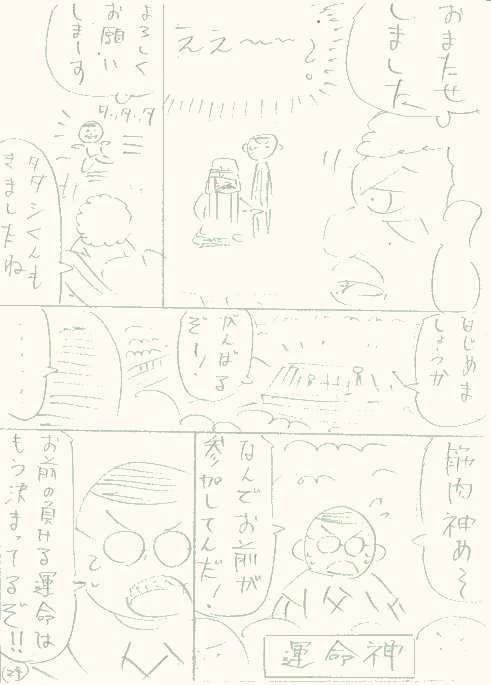 おまたせ
しました
ええ〜〜
〜。
よろしく
お願い
しまーす
タッタッタ
タダシくんも
きましたね
はじめま
しょうか
がんばる
ぞー!
・・・・・・
筋肉神めそ
なんでお前が
参加してんだ!
運命神
お前の負ける運命は
もう決まってるぞ!!